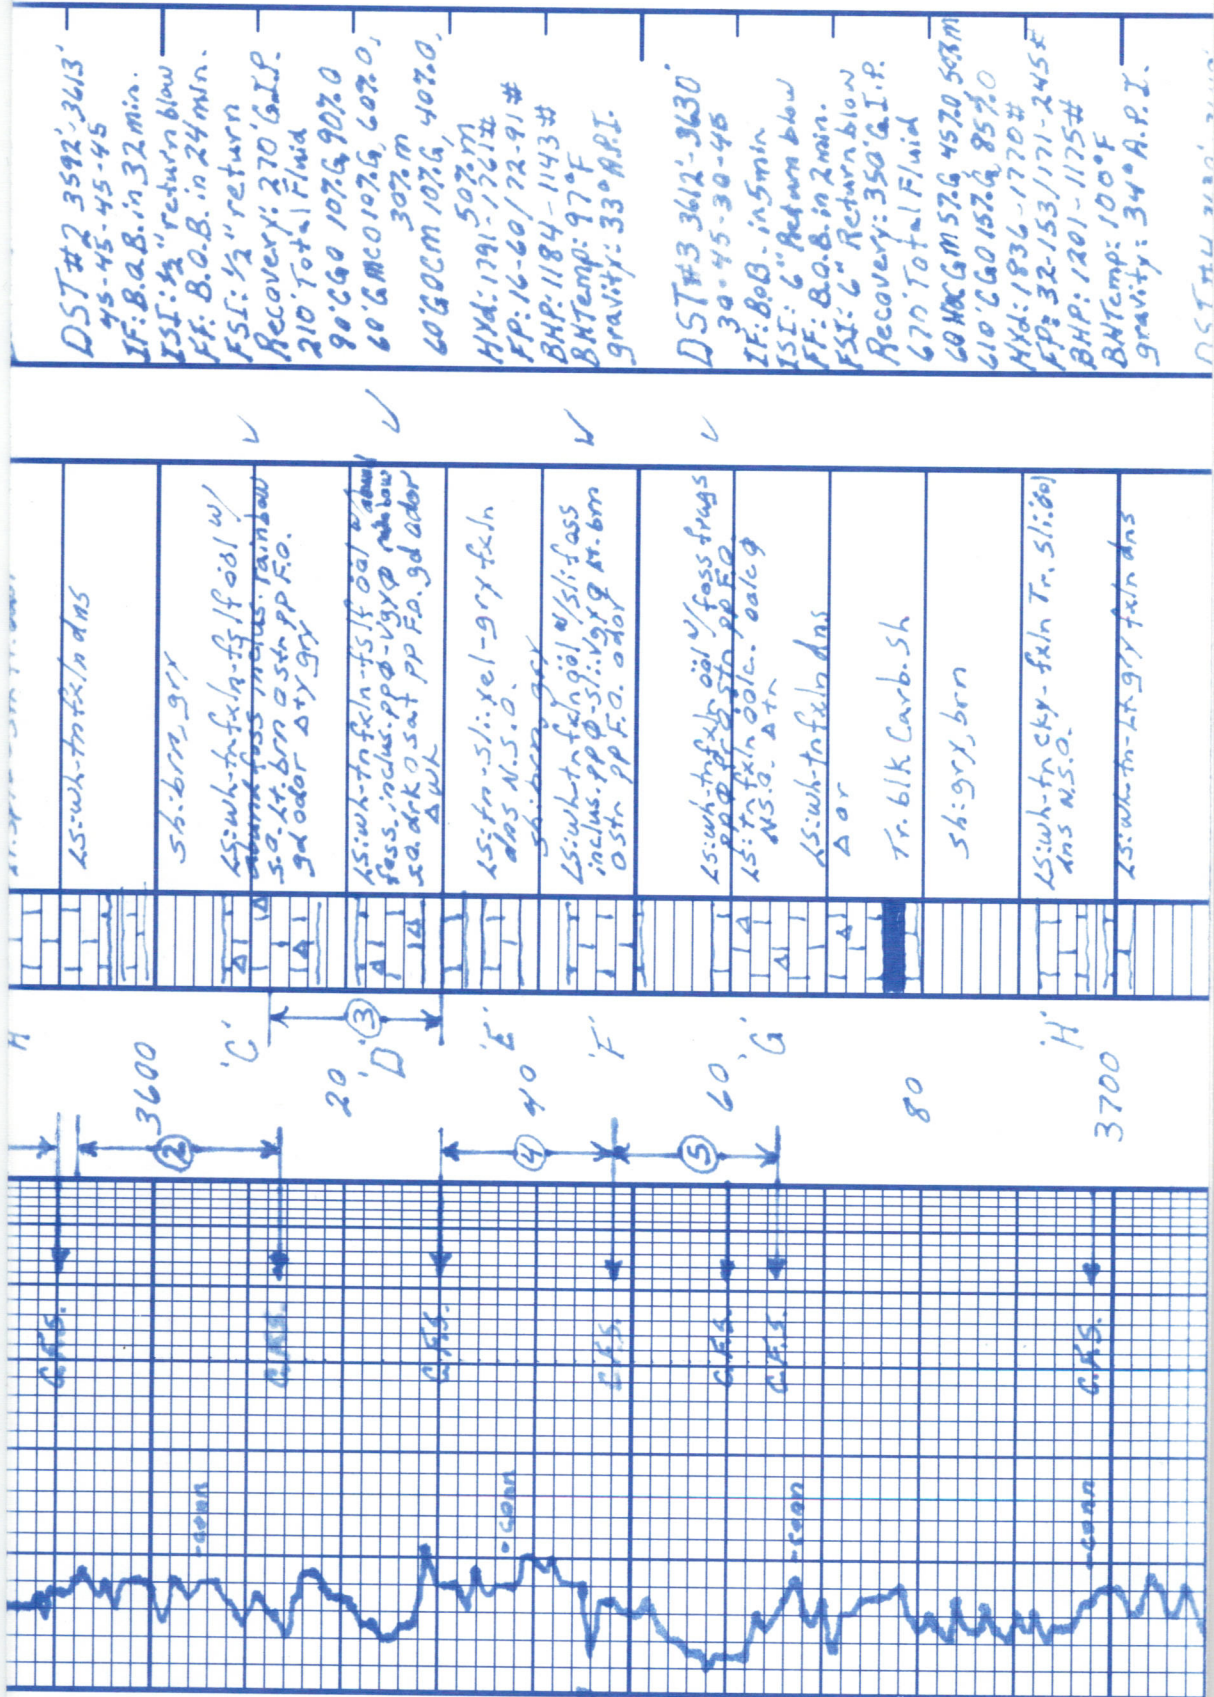 DST #2 3592'-3613'
45-45-45-45
IF: B.O.B. in 32 min.
ISI: ½" return blow
FF: B.O.B. in 24 min.
FSI: ½" return
Recovery: 270' G.I.P.
210' Total Fluid
90' CGO 10%G, 90%O
60' GMCO 10%G, 60%O,
30% m
60' GOCM 10%G, 40%O,
50% m
HYd: 1791-1761#
FP: 16-60/72-91#
BHP: 1184-1143#
BHTemp: 97°F
gravity: 33° A.P.I.
DST #3 3612'-3630'
30-45-30-45
IF: BOB- in 5 min
ISI: 6" Return blow
FF: B.O.B. in 2 min.
FSI: 6" Return blow
Recovery: 350' G.I.P.
670' Total Fluid
60 HOCGM 5%G 45%O 50%m
610' CGO 15%G, 85%O
HYd: 1836-1770#
FP: 32-153/171-245#
BHP: 1201-1175#
BHTemp: 100°F
gravity: 34° A.P.I.
LS: wh-tn fxln dns
sh: brn, gry
LS: wh-tn fxln-fs lf ööl w/
abunt foss inclus. rainbow
s.o. Lt. brn o stn pp F.O.
gd odor Δ ty gry
LS: wh-tn fxln-fs lf ööl w/
foss. inclus. pp Ø-vgy Ø rainbow
s.o. drk o sat pp F.O. gd odor
Δ wh
LS: tn-sli. yel-gry fxln
dns N.S.O.
sh: brn gry
LS: wh-tn fxln ööl w/sli foss
inclus. pp Ø-sli. vgy Ø lt. brn
o stn pp F.O. odor
LS: wh-tn fxln ööl w/foss frags
pp Ø pr o stn pp F.O.
LS: tn fxln oolc. oolc Ø
N.S.O. Δ tn
LS: wh-tn fxln dns
Δ or
Tr. blk Carb. sh
sh: gry, brn
LS: wh-tn cky-fxln Tr. sli. ööl
dns N.S.O.
LS: wh-tn-Lt. gry fxln dns
3600
'C'
20
'D'
'E'
40
'F'
60
'G'
80
'H'
3700
2
3
4
5
C.F.S.
C.F.S.
C.F.S.
C.F.S.
C.F.S.
C.F.S.
C.F.S.
-conn
-conn
-conn
-conn